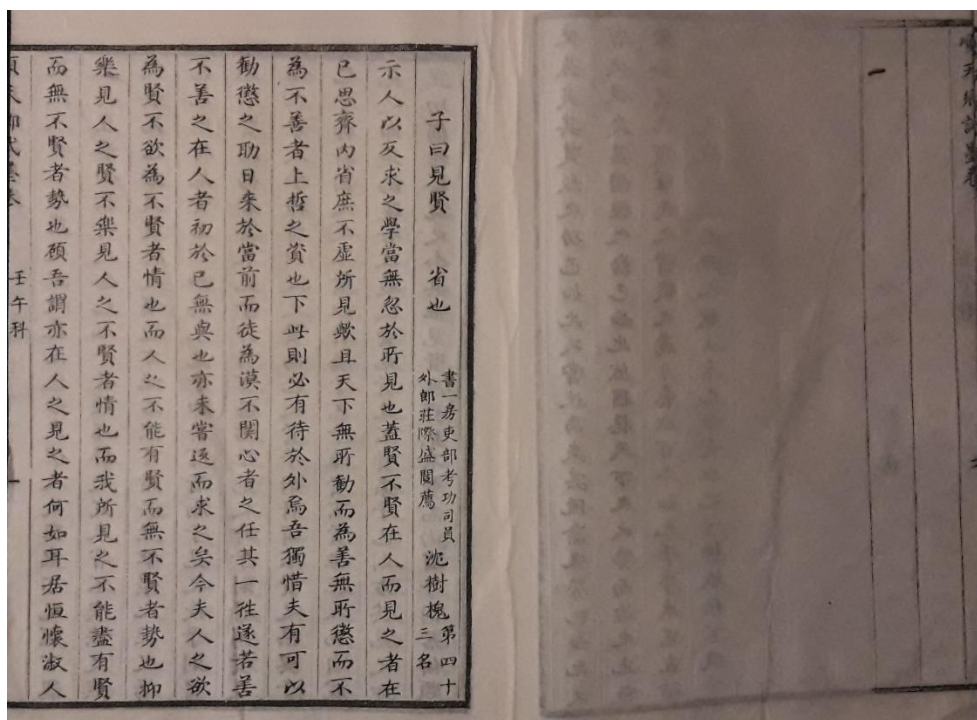 一
子曰見賢 省也 書一房吏部考功司員外郎莊際盛閱薦 沈樹槐 第四十三名
示人以反求之學當無忽於所見也蓋賢不賢在人而見之者在
已思齊內省庶不虛所見歟且天下無所勸而為善無所懲而不
為不善者上哲之資也下此則必有待於外焉吾獨惜夫有可以
勸懲之助日来於當前而徒為漠不関心者之任其一往遂若善
不善之在人者初於已無與也亦未嘗返而求之矣今夫人之欲
為賢不欲為不賢者情也而人之不能有賢而無不賢者勢也抑
樂見人之賢不樂見人之不賢者情也而我所見之不能盡有賢
而無不賢者勢也顧吾謂亦在人之見之者何如耳居恒懷淑人
壬午科 一